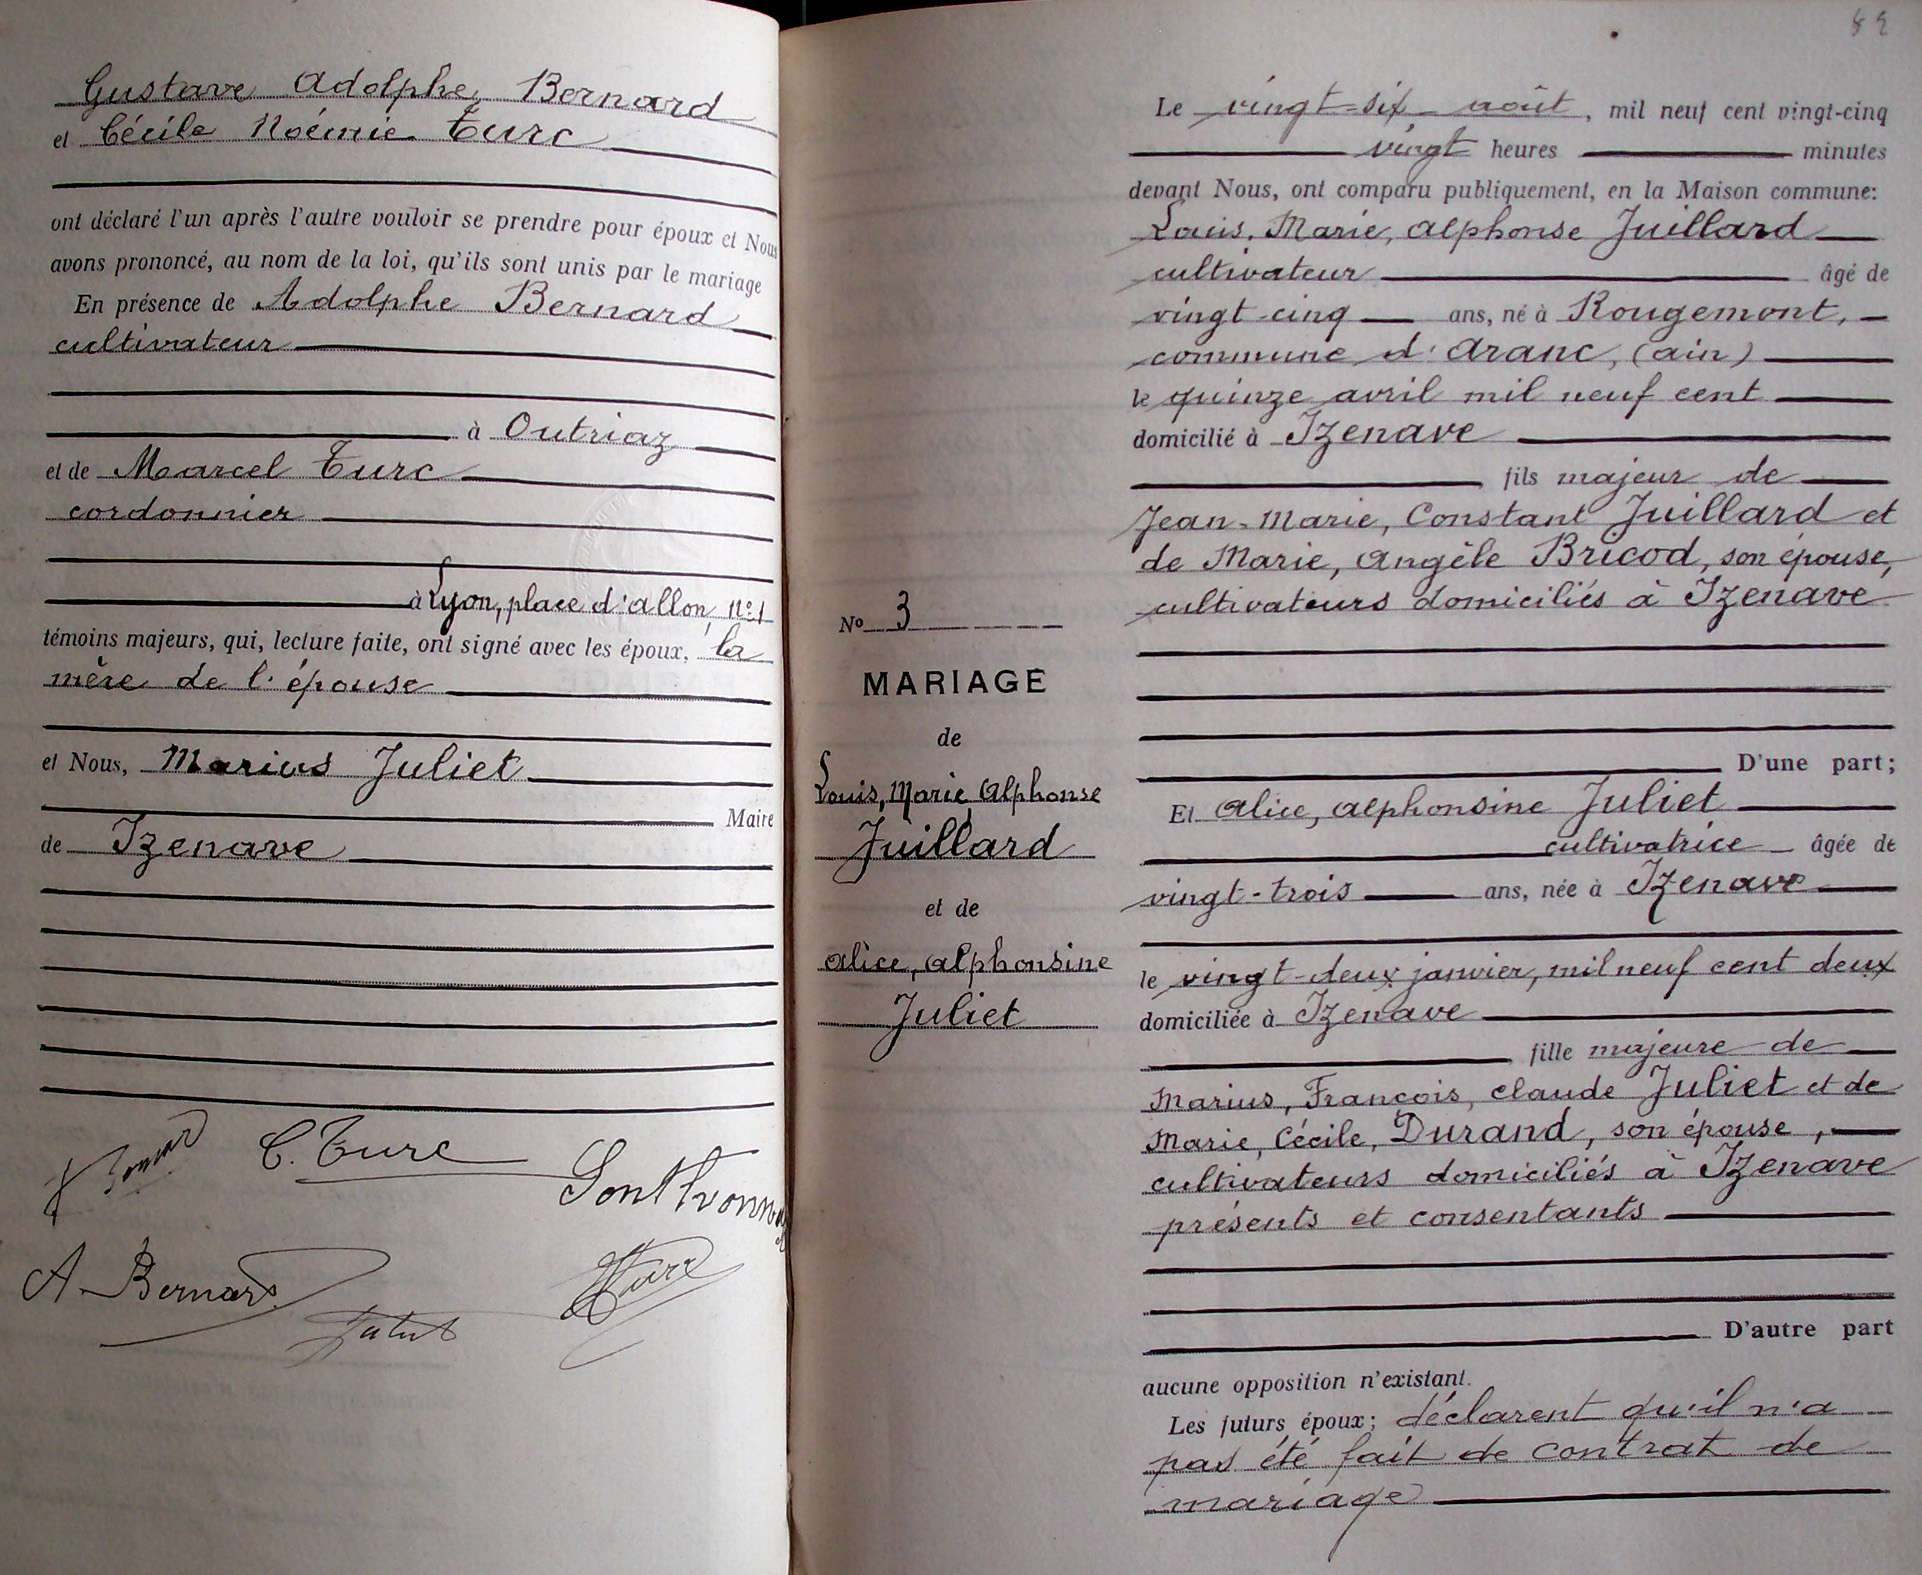 Gustave Adolphe Bernard
et Cécile Noémie Turc
ont déclaré l'un après l'autre vouloir se prendre pour époux et Nous
avons prononcé, au nom de la loi, qu'ils sont unis par le mariage
En présence de Adolphe Bernard
cultivateur
à Outriaz
et de Marcel Turc
cordonnier
à Lyon, place d'Allon, n° 1
témoins majeurs, qui, lecture faite, ont signé avec les époux, la
mère de l'épouse
et Nous, Marius Juliet
Maire
de Izenave
C. Turc
A. Bernard
Juliet
82
Le vingt-six août, mil neuf cent vingt-cinq
vingt heures minutes
devant Nous, ont comparu publiquement, en la Maison commune:
Louis, Marie, Alphonse Juillard
cultivateur âgé de
vingt-cinq ans, né à Rougemont,
commune d'Aranc, (Ain)
le quinze avril mil neuf cent
domicilié à Izenave
fils majeur de
Jean-Marie, Constant Juillard et
de Marie, Angèle Bricod, son épouse,
cultivateurs domiciliés à Izenave
D'une part;
Et Alice, Alphonsine Juliet
cultivatrice âgée de
vingt-trois ans, née à Izenave
le vingt-deux janvier, mil neuf cent deux
domiciliée à Izenave
fille majeure de
Marius, François, Claude Juliet et de
Marie, Cécile, Durand, son épouse,
cultivateurs domiciliés à Izenave
présents et consentants
D'autre part
aucune opposition n'existant.
Les futurs époux; déclarent qu'il n'a
pas été fait de contrat de
mariage
N° 3
MARIAGE
de
Louis, Marie, Alphonse
Juillard
et de
Alice, Alphonsine
Juliet